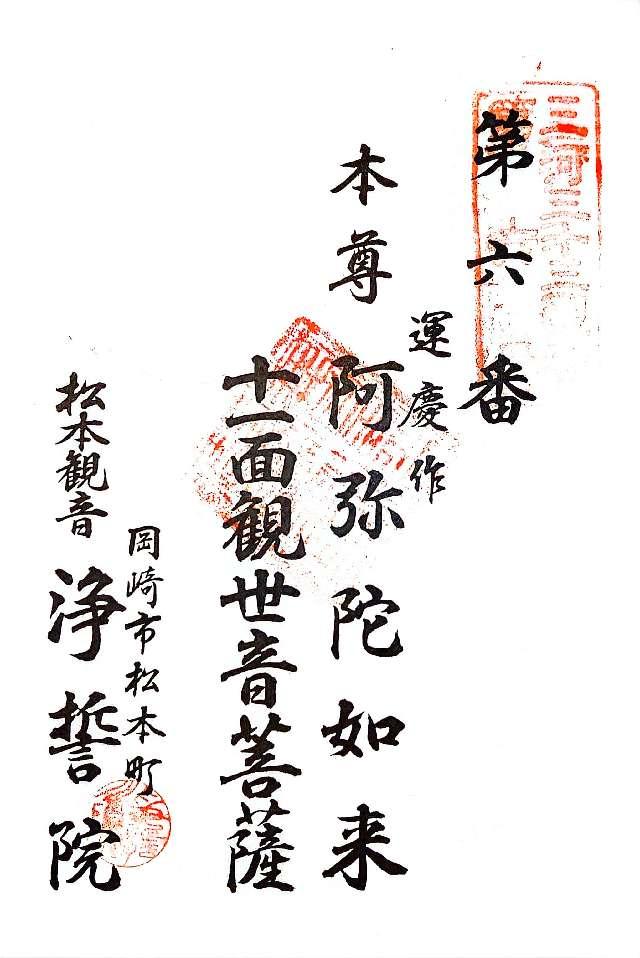 三河三十三
第六番
運慶作
本尊 阿弥陀如来
十一面観世音菩薩
岡崎市松本町
松本観音 浄誓院